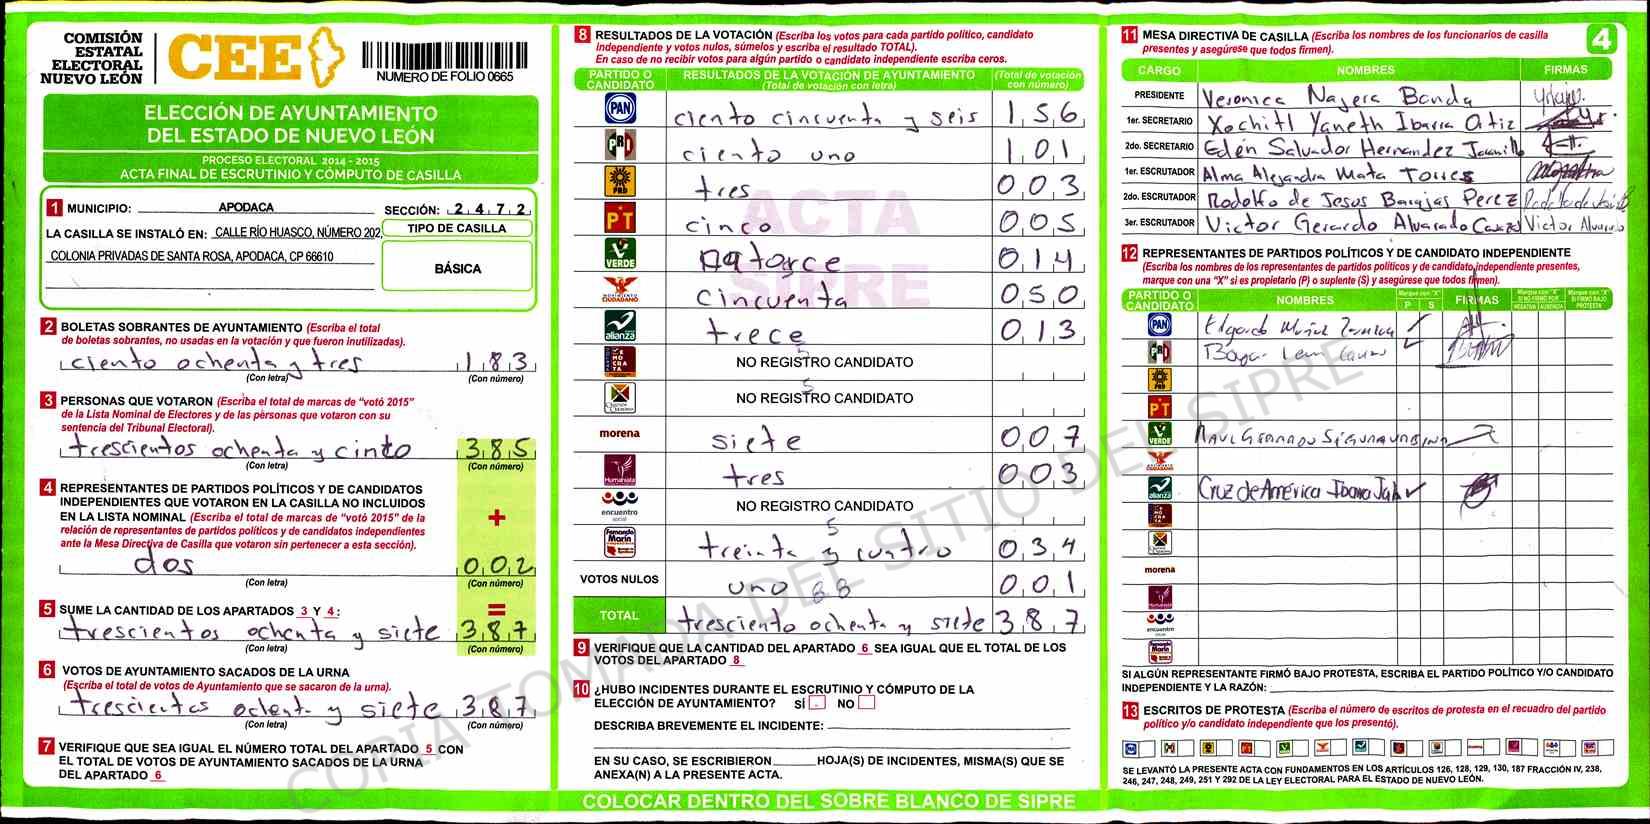 COMISIÓN
ESTATAL
ELECTORAL
NUEVO LEÓN
CEE
NUMERO DE FOLIO 0665
ELECCIÓN DE AYUNTAMIENTO
DEL ESTADO DE NUEVO LEÓN
PROCESO ELECTORAL 2014 - 2015
ACTA FINAL DE ESCRUTINIO Y CÓMPUTO DE CASILLA
1 MUNICIPIO: APODACA SECCIÓN: 2 4 7 2
LA CASILLA SE INSTALÓ EN: CALLE RÍO HUASCO, NÚMERO 202,
COLONIA PRIVADAS DE SANTA ROSA, APODACA, CP 66610
TIPO DE CASILLA
BÁSICA
2 BOLETAS SOBRANTES DE AYUNTAMIENTO (Escriba el total
de boletas sobrantes, no usadas en la votación y que fueron inutilizadas).
ciento ochenta y tres 1 8 3
(Con letra) (Con número)
3 PERSONAS QUE VOTARON (Escriba el total de marcas de “votó 2015”
de la Lista Nominal de Electores y de las personas que votaron con su
sentencia del Tribunal Electoral).
trescientos ochenta y cinco 3 8 5
(Con letra) (Con número)
4 REPRESENTANTES DE PARTIDOS POLÍTICOS Y DE CANDIDATOS
INDEPENDIENTES QUE VOTARON EN LA CASILLA NO INCLUIDOS
EN LA LISTA NOMINAL (Escriba el total de marcas de “votó 2015” de la
relación de representantes de partidos políticos y de candidatos independientes
ante la Mesa Directiva de Casilla que votaron sin pertenecer a esta sección).
+
dos 0 0 2
(Con letra) (Con número)
5 SUME LA CANTIDAD DE LOS APARTADOS 3 Y 4 :
=
trescientos ochenta y siete 3 8 7
(Con letra) (Con número)
6 VOTOS DE AYUNTAMIENTO SACADOS DE LA URNA
(Escriba el total de votos de Ayuntamiento que se sacaron de la urna).
trescientos ochenta y siete 3 8 7
(Con letra) (Con número)
7 VERIFIQUE QUE SEA IGUAL EL NÚMERO TOTAL DEL APARTADO 5 CON
EL TOTAL DE VOTOS DE AYUNTAMIENTO SACADOS DE LA URNA
DEL APARTADO 6
8 RESULTADOS DE LA VOTACIÓN (Escriba los votos para cada partido político, candidato
independiente y votos nulos, súmelos y escriba el resultado TOTAL).
En caso de no recibir votos para algún partido o candidato independiente escriba ceros.
PARTIDO O CANDIDATO RESULTADOS DE LA VOTACIÓN DE AYUNTAMIENTO (Total de votación con letra) (Total de votación con número)
PAN ciento cincuenta y seis 1 5 6
PRD ciento uno 1 0 1
PRD tres 0 0 3
PT cinco 0 0 5
VERDE catorce 0 1 4
MOVIMIENTO CIUDADANO cincuenta 0 5 0
alianza trece 0 1 3
NO REGISTRO CANDIDATO
NO REGISTRO CANDIDATO
morena siete 0 0 7
Humanista tres 0 0 3
encuentro social NO REGISTRO CANDIDATO
Fernando Marín treinta y cuatro 0 3 4
VOTOS NULOS uno 0 0 1
TOTAL tresciento ochenta y siete 3 8 7
ACTA
SIPRE
9 VERIFIQUE QUE LA CANTIDAD DEL APARTADO 6 SEA IGUAL QUE EL TOTAL DE LOS
VOTOS DEL APARTADO 8
10 ¿HUBO INCIDENTES DURANTE EL ESCRUTINIO Y CÓMPUTO DE LA
ELECCIÓN DE AYUNTAMIENTO? SÍ NO
DESCRIBA BREVEMENTE EL INCIDENTE:
EN SU CASO, SE ESCRIBIERON HOJA(S) DE INCIDENTES, MISMA(S) QUE SE
ANEXA(N) A LA PRESENTE ACTA.
COLOCAR DENTRO DEL SOBRE BLANCO DE SIPRE
11 MESA DIRECTIVA DE CASILLA (Escriba los nombres de los funcionarios de casilla
presentes y asegúrese que todos firmen).
4
CARGO NOMBRES FIRMAS
PRESIDENTE Veronica Najera Banda
1er. SECRETARIO Xochitl Yaneth Ibarra Ortiz
2do. SECRETARIO Edén Salvador Hernandez Jaramillo
1er. ESCRUTADOR Alma Alejandra Mata Torres
2do. ESCRUTADOR Rodolfo de Jesus Barajas Perez
3er. ESCRUTADOR Victor Gerardo Alvarado Victor Alvarado
12 REPRESENTANTES DE PARTIDOS POLÍTICOS Y DE CANDIDATO INDEPENDIENTE
(Escriba los nombres de los representantes de partidos políticos y de candidato independiente presentes,
marque con una “X” si es propietario (P) o suplente (S) y asegúrese que todos firmen).
PARTIDO O CANDIDATO NOMBRES Marque con "X" P S FIRMAS Marque con "X" SI NO FIRMÓ POR NEGATIVA AUSENCIA Marque con "X" SI FIRMÓ BAJO PROTESTA
PAN Edgardo
PRD
PRD
PT
VERDE
alianza Cruz de América Ibarra
morena
Humanista
encuentro social
SI ALGÚN REPRESENTANTE FIRMÓ BAJO PROTESTA, ESCRIBA EL PARTIDO POLÍTICO Y/O CANDIDATO
INDEPENDIENTE Y LA RAZÓN:
13 ESCRITOS DE PROTESTA (Escriba el número de escritos de protesta en el recuadro del partido
político y/o candidato independiente que los presentó).
SE LEVANTÓ LA PRESENTE ACTA CON FUNDAMENTOS EN LOS ARTÍCULOS 126, 128, 129, 130, 187 FRACCIÓN IV, 238,
246, 247, 248, 249, 251 Y 292 DE LA LEY ELECTORAL PARA EL ESTADO DE NUEVO LEÓN.
COPIA TOMADA DEL SITIO DEL SIPRE